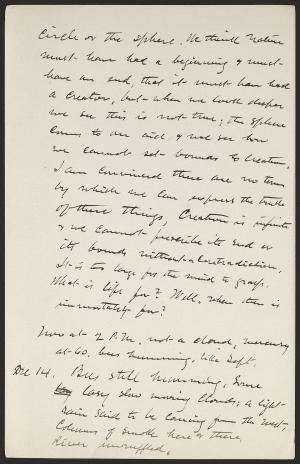 circle or the sphere. We think Nature
must have had a beginning & must
have an end, that it must have had
a Creator, but when we look deeper
we see this is not true; the sphere
comes to our aid, & we see how
we cannot set bounds to Creation.
I am convinced there are no terms
by which we can express the truth
of these things, Creation is infinite
& we cannot prescribe its end or
its bounds without a contradiction.
It is too large for the mind to grasp.
What is life for? Well, what then is
immortality for?
Now at 2 P.M. not a cloud, mercury
at 60. bees humming, like Sept.
Dec 14. Bees still humming. Some
lazy slow moving clouds; a light
rain said to be coming from the west.
Columns of smoke here & there,
River unruffled.